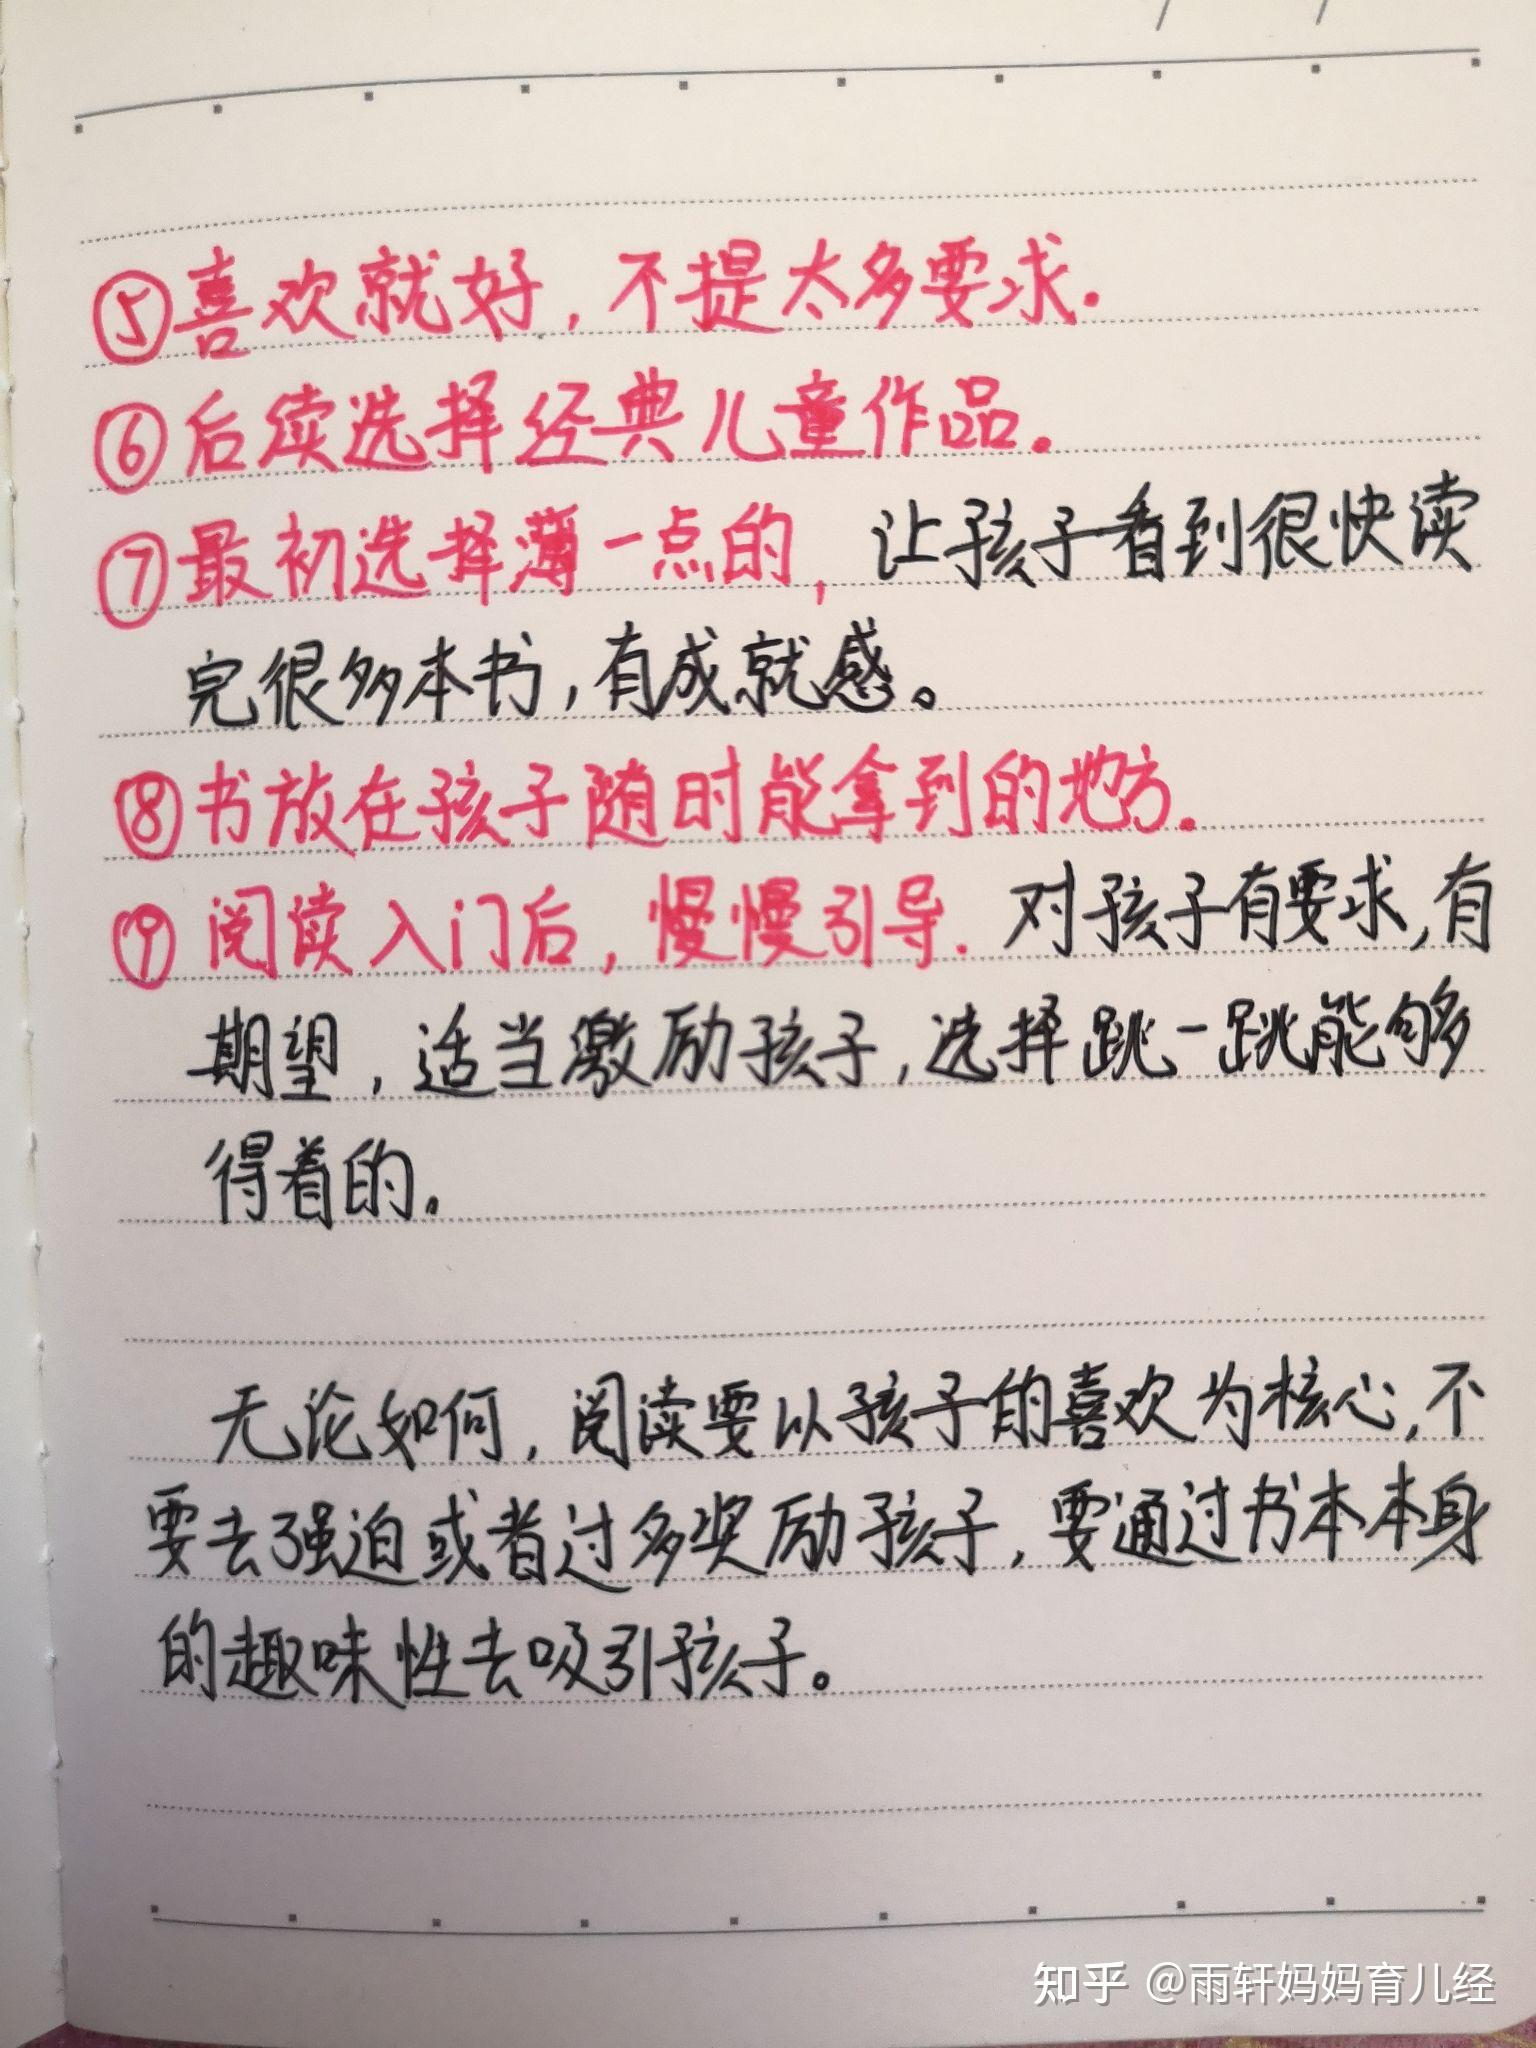 ⑤喜欢就好，不提太多要求.
⑥后续选择经典儿童作品.
⑦最初选择薄一点的，让孩子看到很快读
完很多本书，有成就感。
⑧书放在孩子随时能拿到的地方.
⑨阅读入门后，慢慢引导.对孩子有要求,有
期望，适当激励孩子，选择跳一跳能够
得着的.
无论如何，阅读要以孩子的喜欢为核心,不
要去强迫或者过多奖励孩子，要通过书本本身
的趣味性去吸引孩子。
知乎 @雨轩妈妈育儿经